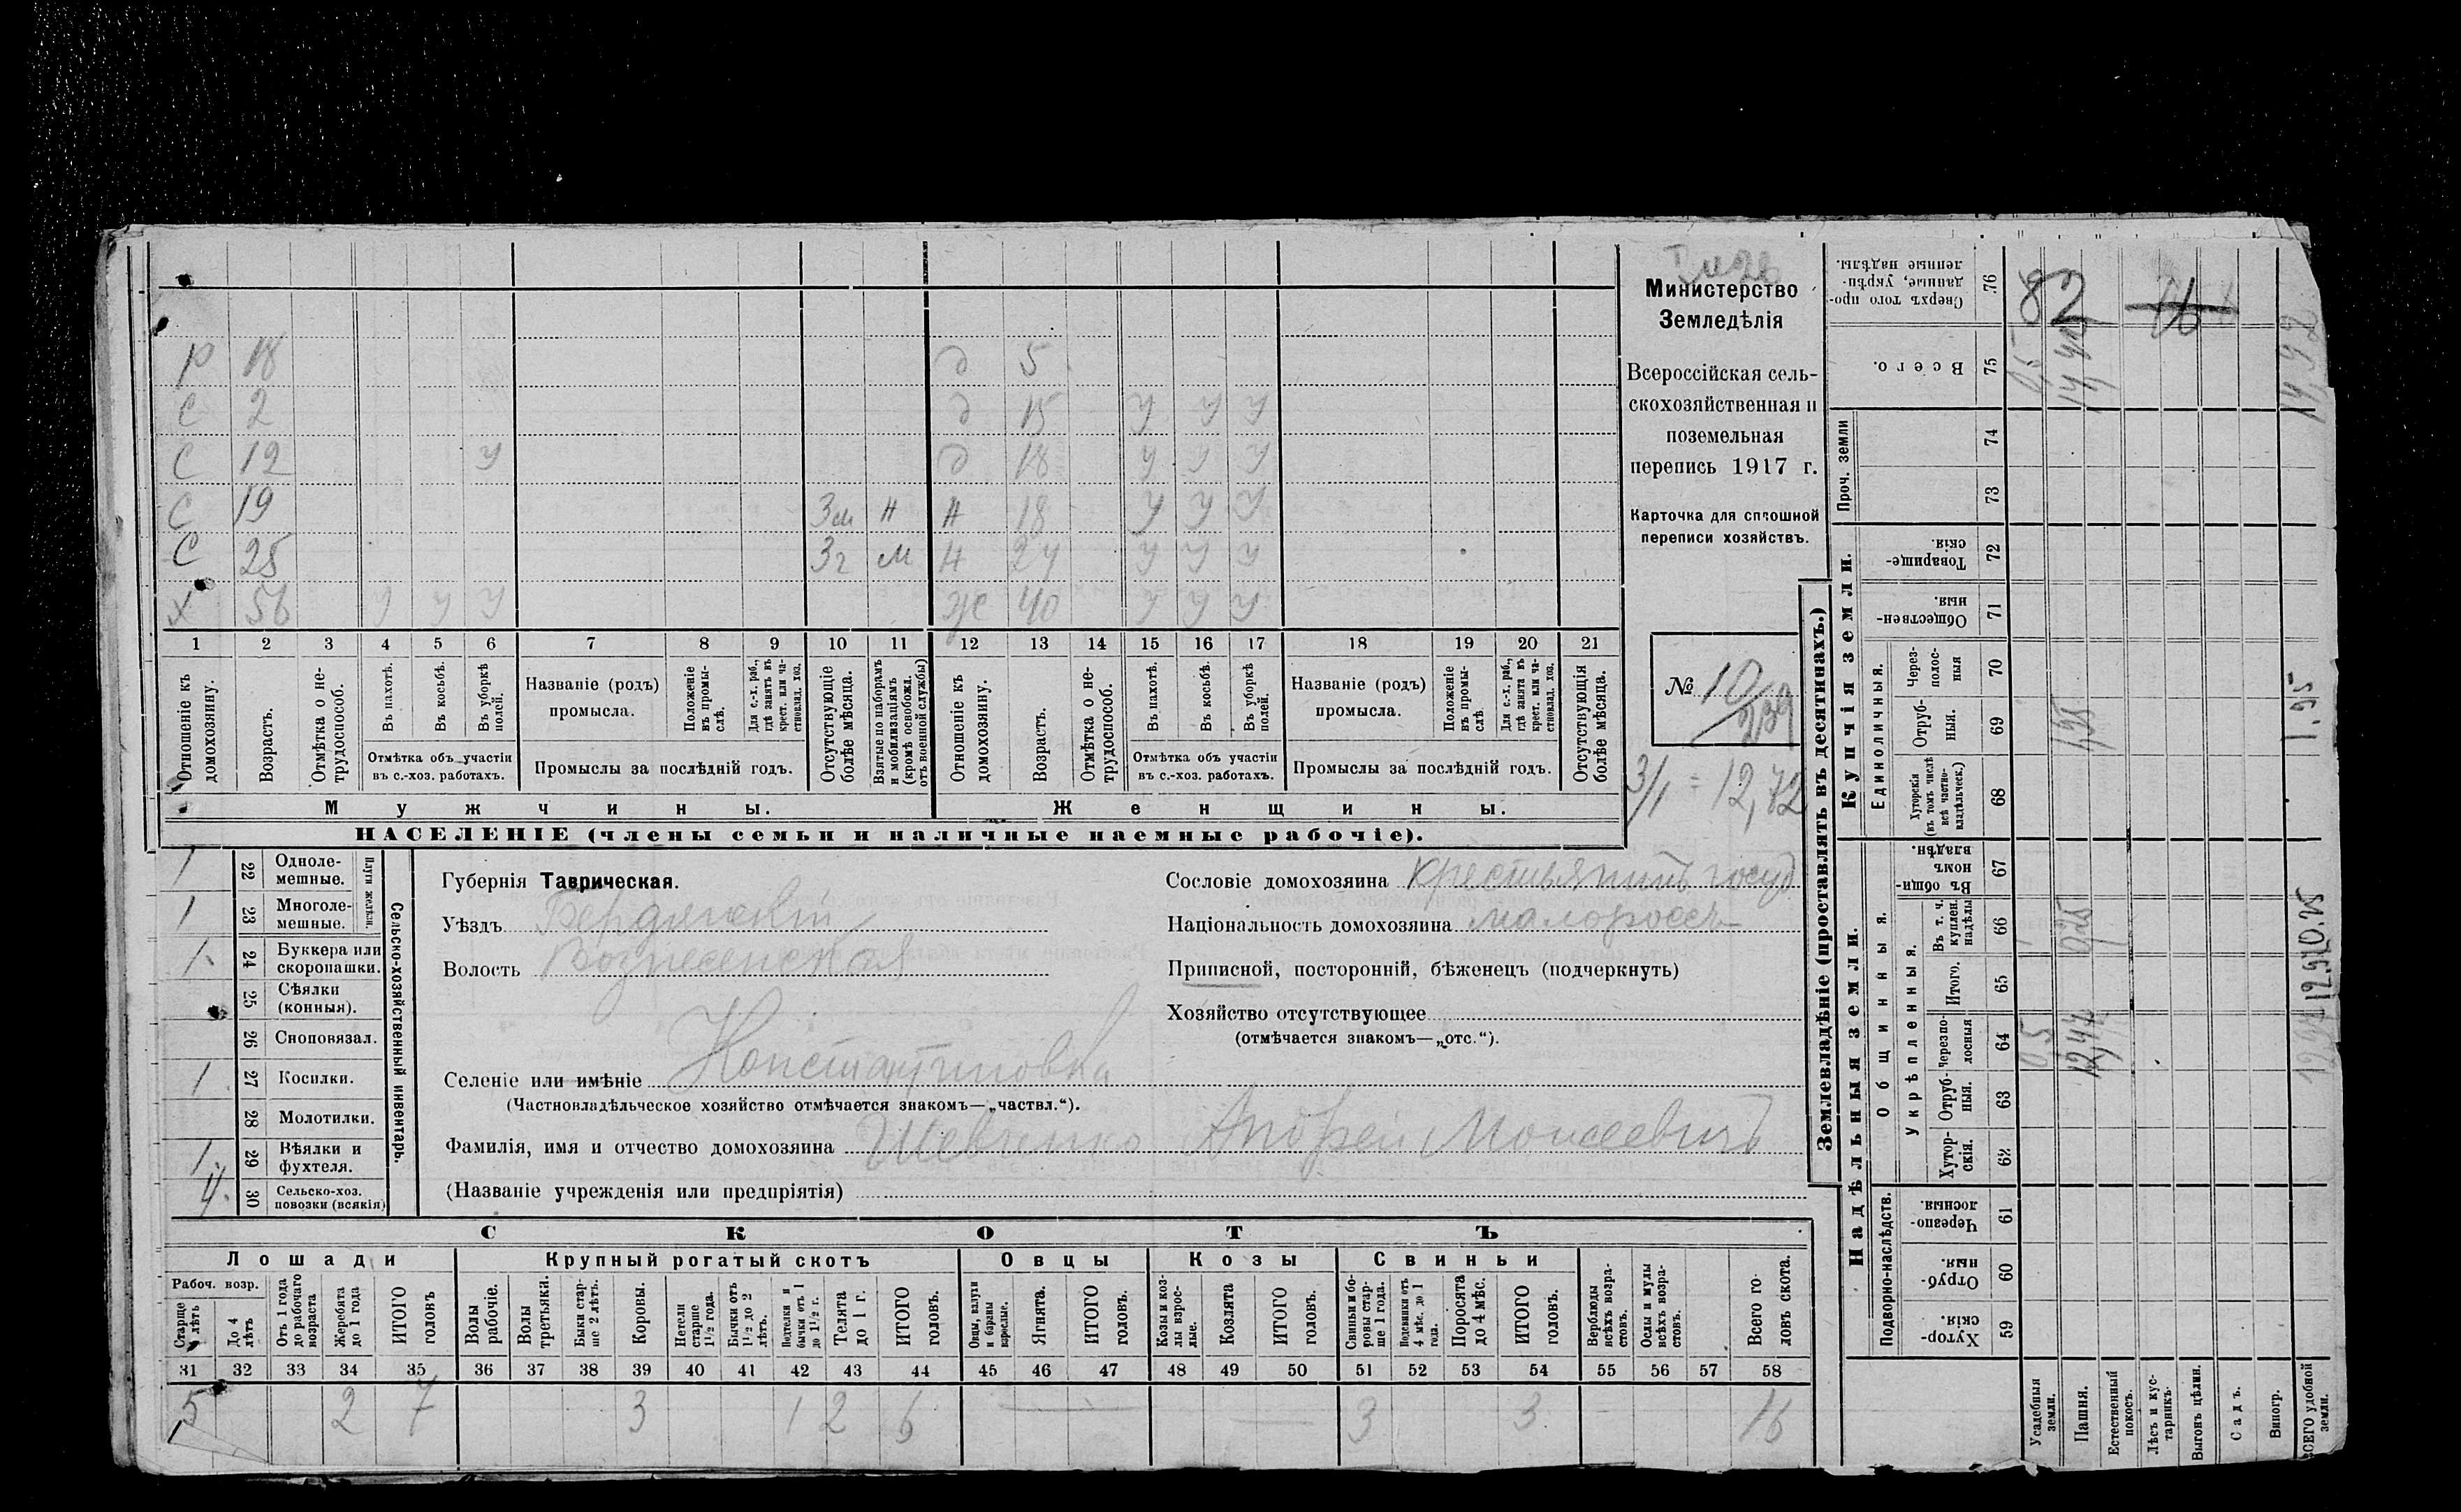 Р 18 д 5
С 2 д 15 У У У
С 12 У д 18 У У У
С 19 3м Н Н 18 У У У
С 25 3г М Н 24 У У У
Х 56 У У У Ж 40 У У У
1 2 3 4 5 6 7 8 9 10 11 12 13 14 15 16 17 18 19 20 21
Отношеніе къ домохозяину.
Возрастъ.
Отмѣтка о не-трудоспособ.
Въ пахотѣ.
Въ косьбѣ.
Въ уборкѣ полей.
Отмѣтка объ участіи
въ с.-хоз. работахъ.
Названіе (родъ)
промысла.
Положеніе въ промы-слѣ.
Для с.-х. раб., гдѣ занятъ въ крест. или ча-стновлад. хоз.
Промыслы за послѣдній годъ.
Отсутствующіе болѣе мѣсяца.
Взятые по наборамъ и мобилизаціямъ (кромѣ освобожд. отъ военной службы)
Отношеніе къ домохозяину.
Возрастъ.
Отмѣтка о не-трудоспособ.
Въ пахотѣ.
Въ косьбѣ.
Въ уборкѣ полей.
Отмѣтка объ участіи
въ с.-хоз. работахъ.
Названіе (родъ)
промысла.
Положеніе въ промы-слѣ.
Для с.-х. раб., гдѣ занята въ крест. или ча-стновлад. хоз.
Промыслы за послѣдній годъ.
Отсутствующія болѣе мѣсяца.
Мужчины.
Женщины.
НАСЕЛЕНІЕ (члены семьи и наличные наемные рабочіе).
Министерство
Земледѣлія
Всероссійская сель-
скохозяйственная и
поземельная
перепись 1917 г.
Карточка для сплошной
переписи хозяйствъ.
№ 10/239
3/1 = 12,72
1 22 Одноле-мешные.
1 23 Многоле-мешные.
Плуги желѣзн.
1. 24 Буккера или скоропашки.
25 Сѣялки (конныя).
26 Сноповязал.
1 27 Косилки.
28 Молотилки.
1 29 Вѣялки и фухтеля.
4. 30 Сельско-хоз. повозки (всякія)
Сельско-хозяйственный инвентарь.
Губернія Таврическая.
Уѣздъ Бердянскій
Волость Вознесенская
Селеніе или имѣніе Константиновка
(Частновладѣльческое хозяйство отмѣчается знакомъ—„частвл.“).
Фамилія, имя и отчество домохозяина Шевченко Андрей Моисеевичъ
(Названіе учрежденія или предпріятія)
Сословіе домохозяина крестьянинъ госуд
Національность домохозяина малороссъ
Приписной, посторонній, бѣженецъ (подчеркнуть)
Хозяйство отсутствующее
(отмѣчается знакомъ—„отс.“).
СКОТЪ
Лошади
Крупный рогатый скотъ
Овцы
Козы
Свиньи
Рабоч. возр.
Старше 4 лѣтъ
До 4 лѣтъ
Отъ 1 года до рабочаго возраста
Жеребята до 1 года
ИТОГО головъ
Волы рабочіе.
Волы третьяки.
Быки стар-ше 2 лѣтъ.
Коровы.
Нетели старше 1½ года.
Бычки отъ 1½ до 2 лѣтъ.
Подтелки и бычки отъ 1 до 1½ г.
Телята до 1 г.
ИТОГО головъ.
Овцы, валухи и бараны взрослые.
Ягнята.
ИТОГО головъ.
Козы и коз-лы взрос-лые.
Козлята
ИТОГО головъ.
Свиньи и бо-ровы стар-ше 1 года.
Подсвинки отъ 4 мѣс. до 1 года.
Поросята до 4 мѣс.
ИТОГО головъ.
Верблюды всѣхъ возра-стовъ.
Ослы и мулы всѣхъ возра-стовъ.
Всего го-ловъ скота.
31 32 33 34 35 36 37 38 39 40 41 42 43 44 45 46 47 48 49 50 51 52 53 54 55 56 57 58
5 2 7 3 1 2 6 — — 3 3 16
Землевладѣніе (проставлять въ десятинахъ.)
Надѣльныя земли.
Купчія земли.
Проч. земли
Подворно-наслѣдств.
Общинныя.
Укрѣпленныя.
Единоличныя.
Хутор-скія. 59
Отруб-ныя. 60
Черезпо-лосныя 61
Хутор-скія. 62
Отруб-ныя. 63
Черезпо-лосныя 64
Итого. 65
Въ т. ч. куплен. надѣлы 66
Въ общи-номъ владѣн. 67
Хуторскія (въ томъ числѣ всѣ частно-владѣльческ.) 68
Отруб-ныя. 69
Через-полос-ныя 70
Обществен-ныя. 71
Товарище-скія. 72
73
74
Всего. 75
Сверхъ того про-данные, укрѣп-ленные надѣлы. 76
Усадебныя земли.
Пашня.
Естественный покосъ.
Лѣсъ и кус-тарникъ.
Выгонъ цѣлин.
Садъ.
Виногр.
ВСЕГО удобной земли.
82
16
0,5
14,92
1,95
0,5
12,42